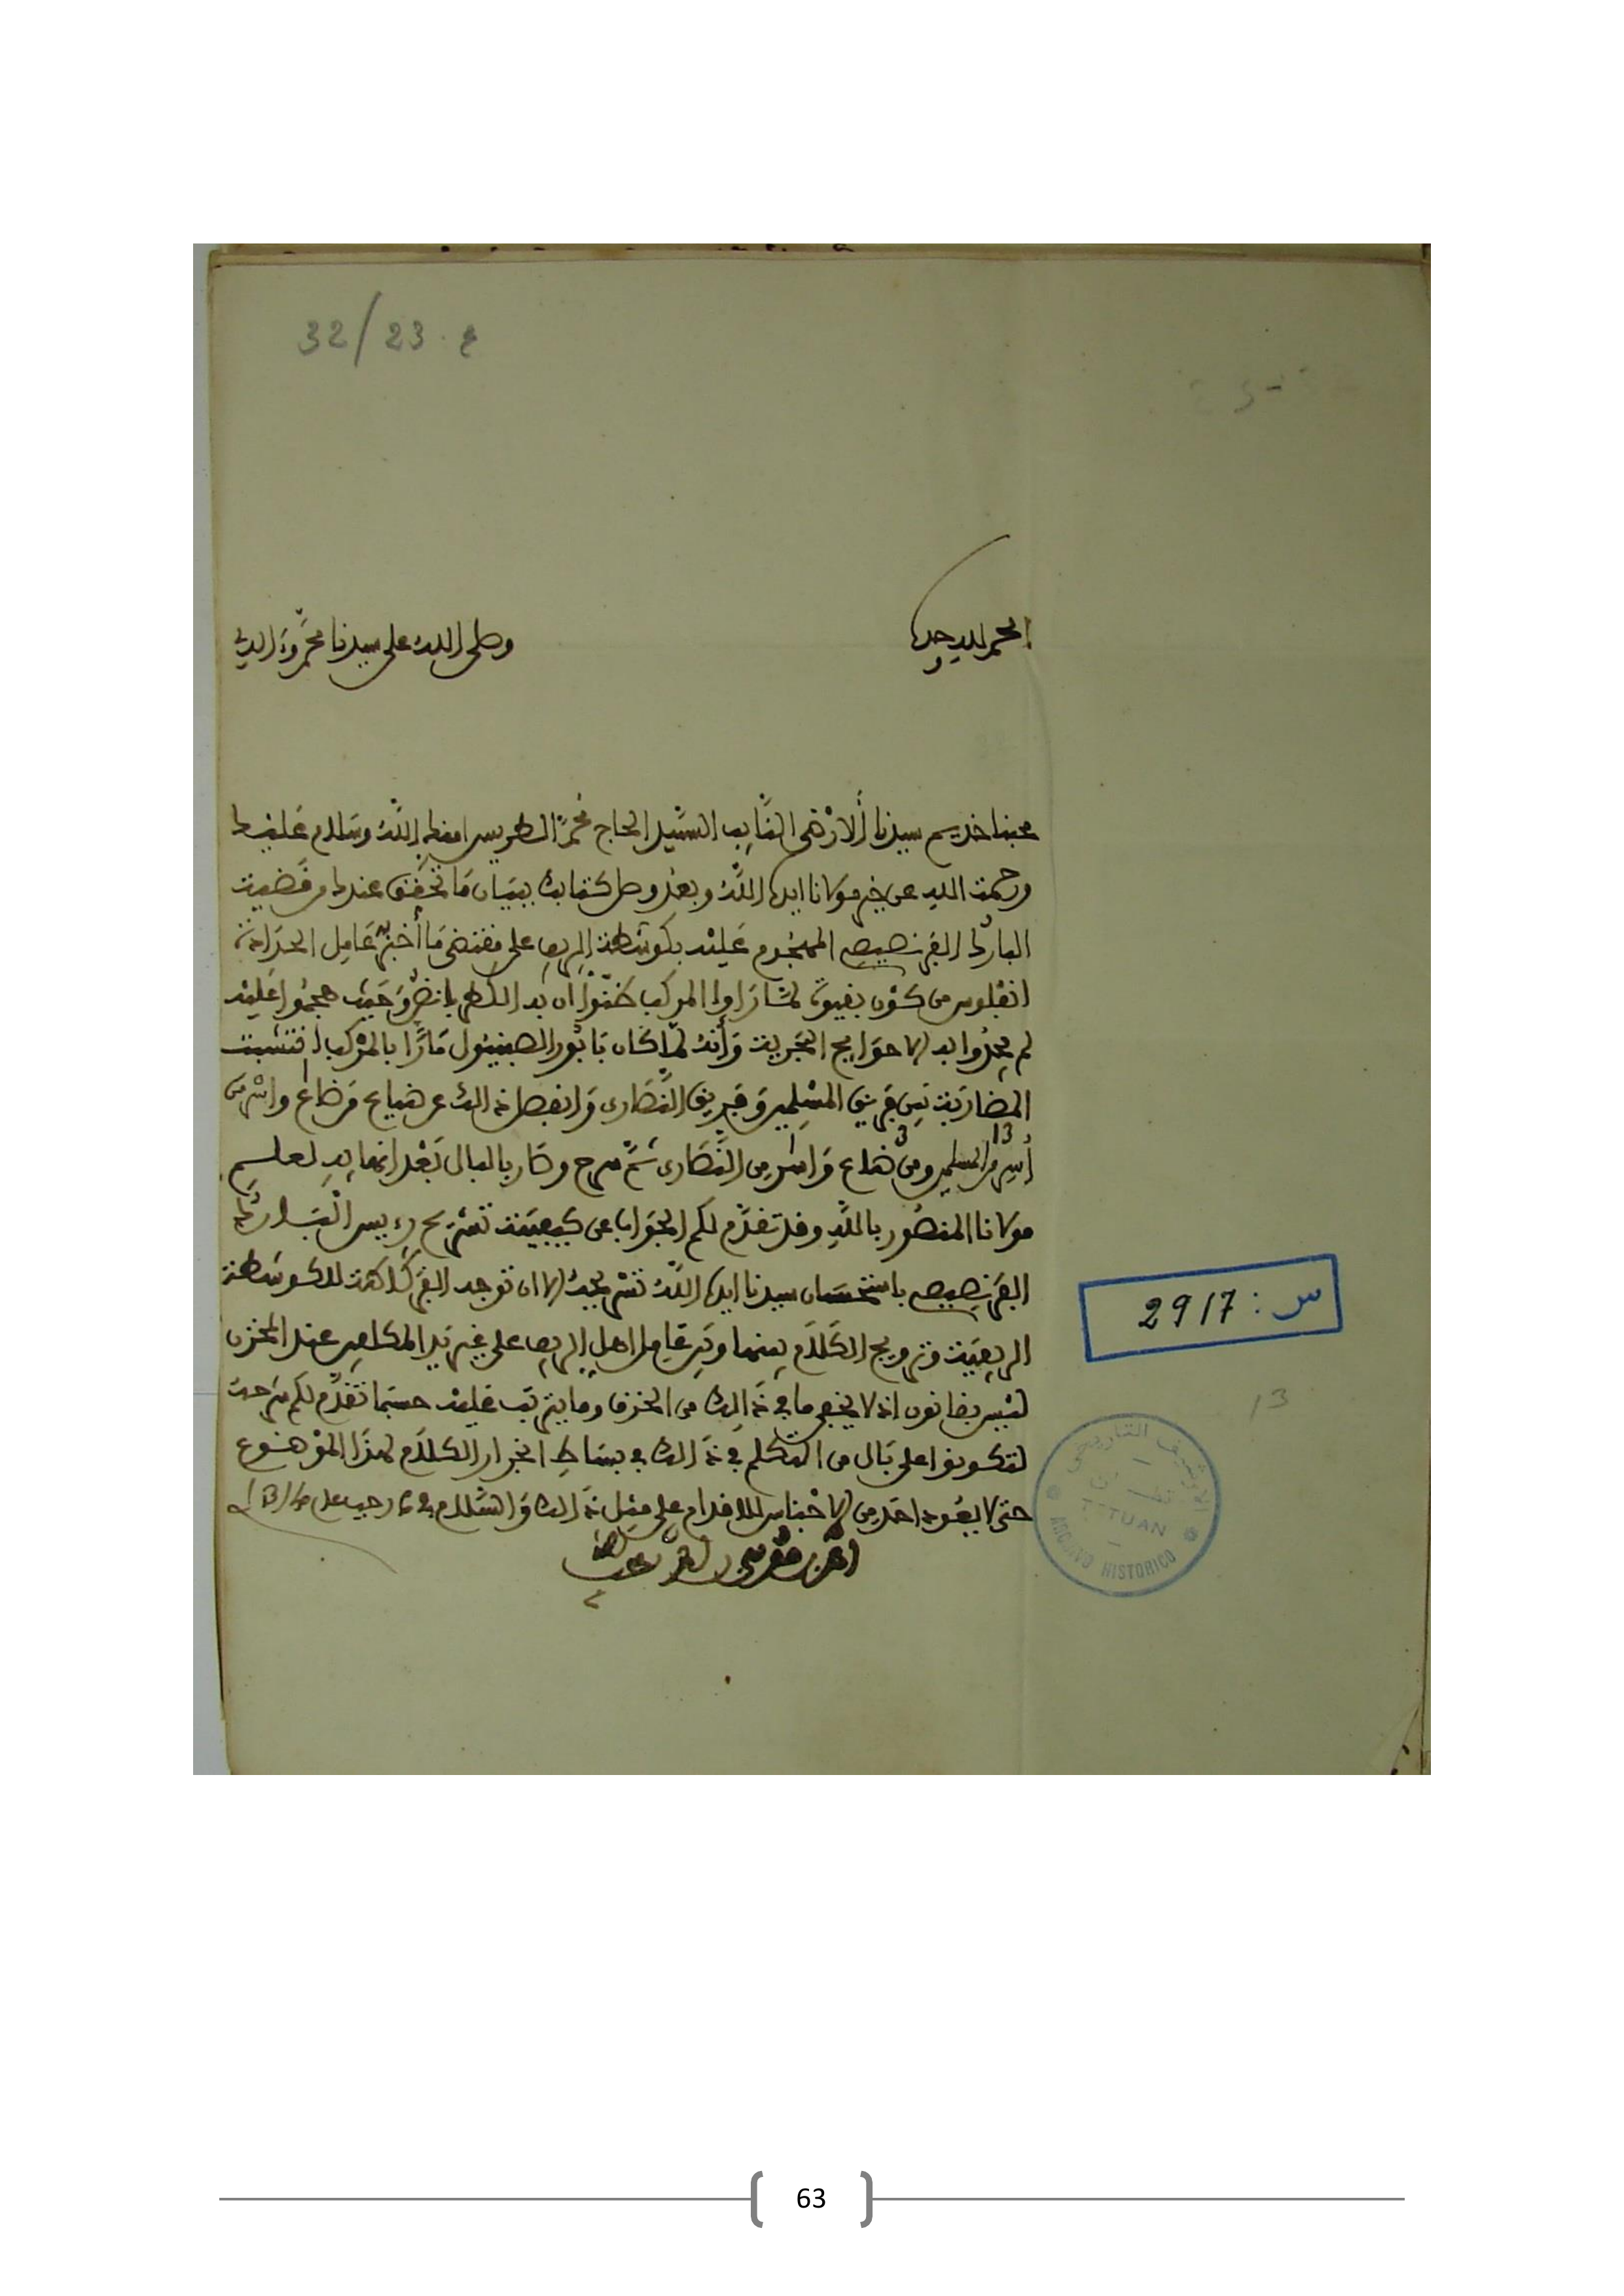 32/23.ع
الحمد لله وحده
وصلى الله على سيدنا محمد وءاله
محبنا خديم سيدنا الارضى النايب السيد الحاج محمد الطريس امنك الله وسلام عليك
ورحمت الله عن خير مولانا ايده الله وبعد وصل كتابك ببيان ما تحقق عندك من قضيت
الباركُ الفرنصيص المهجوم عليه بكوسطة الريف على مقتضى ما أخبر به عامل
من كون بقيوة لما راوا المركب ظنوا ان به الكطربانضو حيث هجموا عليه
لم يجدوا به الا حوايج البحرية وأنه لما كان بابور الصبنيول مارا بالمركب انتشبت
المضاربة بين فريق المسلمين وفريق النصارى وانفصل ذالك عن ضياع من ضاع واسر من
أسر من المسلمين 13 ومن ضاع 3 واسر من النصارى ثم سرح وصار بالبال بعد انهايه لعلم
مولانا المنصور بالله وقد تقدم لكم الجواب عن كيفية تسريح رءيس البارك
الفرنصيص باستحسان سيدنا ايده الله تسريحه الا ان توجه الفركاطة للكوسطة
الريفية وترويج الكلام بينها وبين عامل اهل الريف على غير يد المكلفين عند المخزن
ليس بقانون اذ لا يخفى ما في ذالك من الخزف وما يترتب عليه حسبما تقدم لكم شرحه
لتكونوا على بال من التكلم في ذالك في بساط انجرار الكلام لهذا الموضوع
حتى لا يعود احد من الاجناس للاقدام على مثل ذالك والسلام في 6 رجب عام
احمد بن موسى بن احمد
س: 2917
13
الارشيف التاريخي
تطوان
TETUAN
ARCHIVO HISTORICO
63